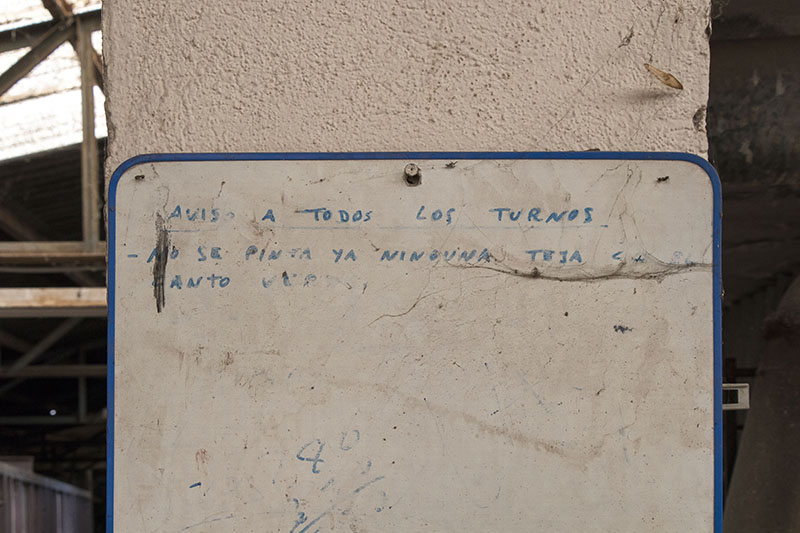 AVISO A TODOS LOS TURNOS
- NO SE PINTA YA NINGUNA TEJA
ANTO